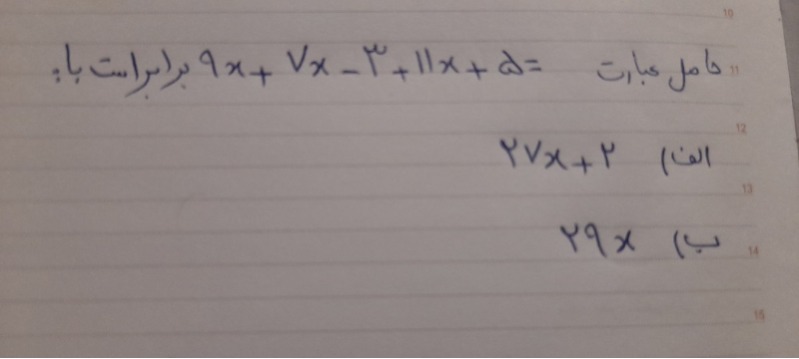 حاصل عبارت = ۹x + ۷x - ۳ + ۱۱x + ۵ برابر است با:
الف) ۲۷x + ۲
ب) ۲۹x
10
11
12
13
14
15